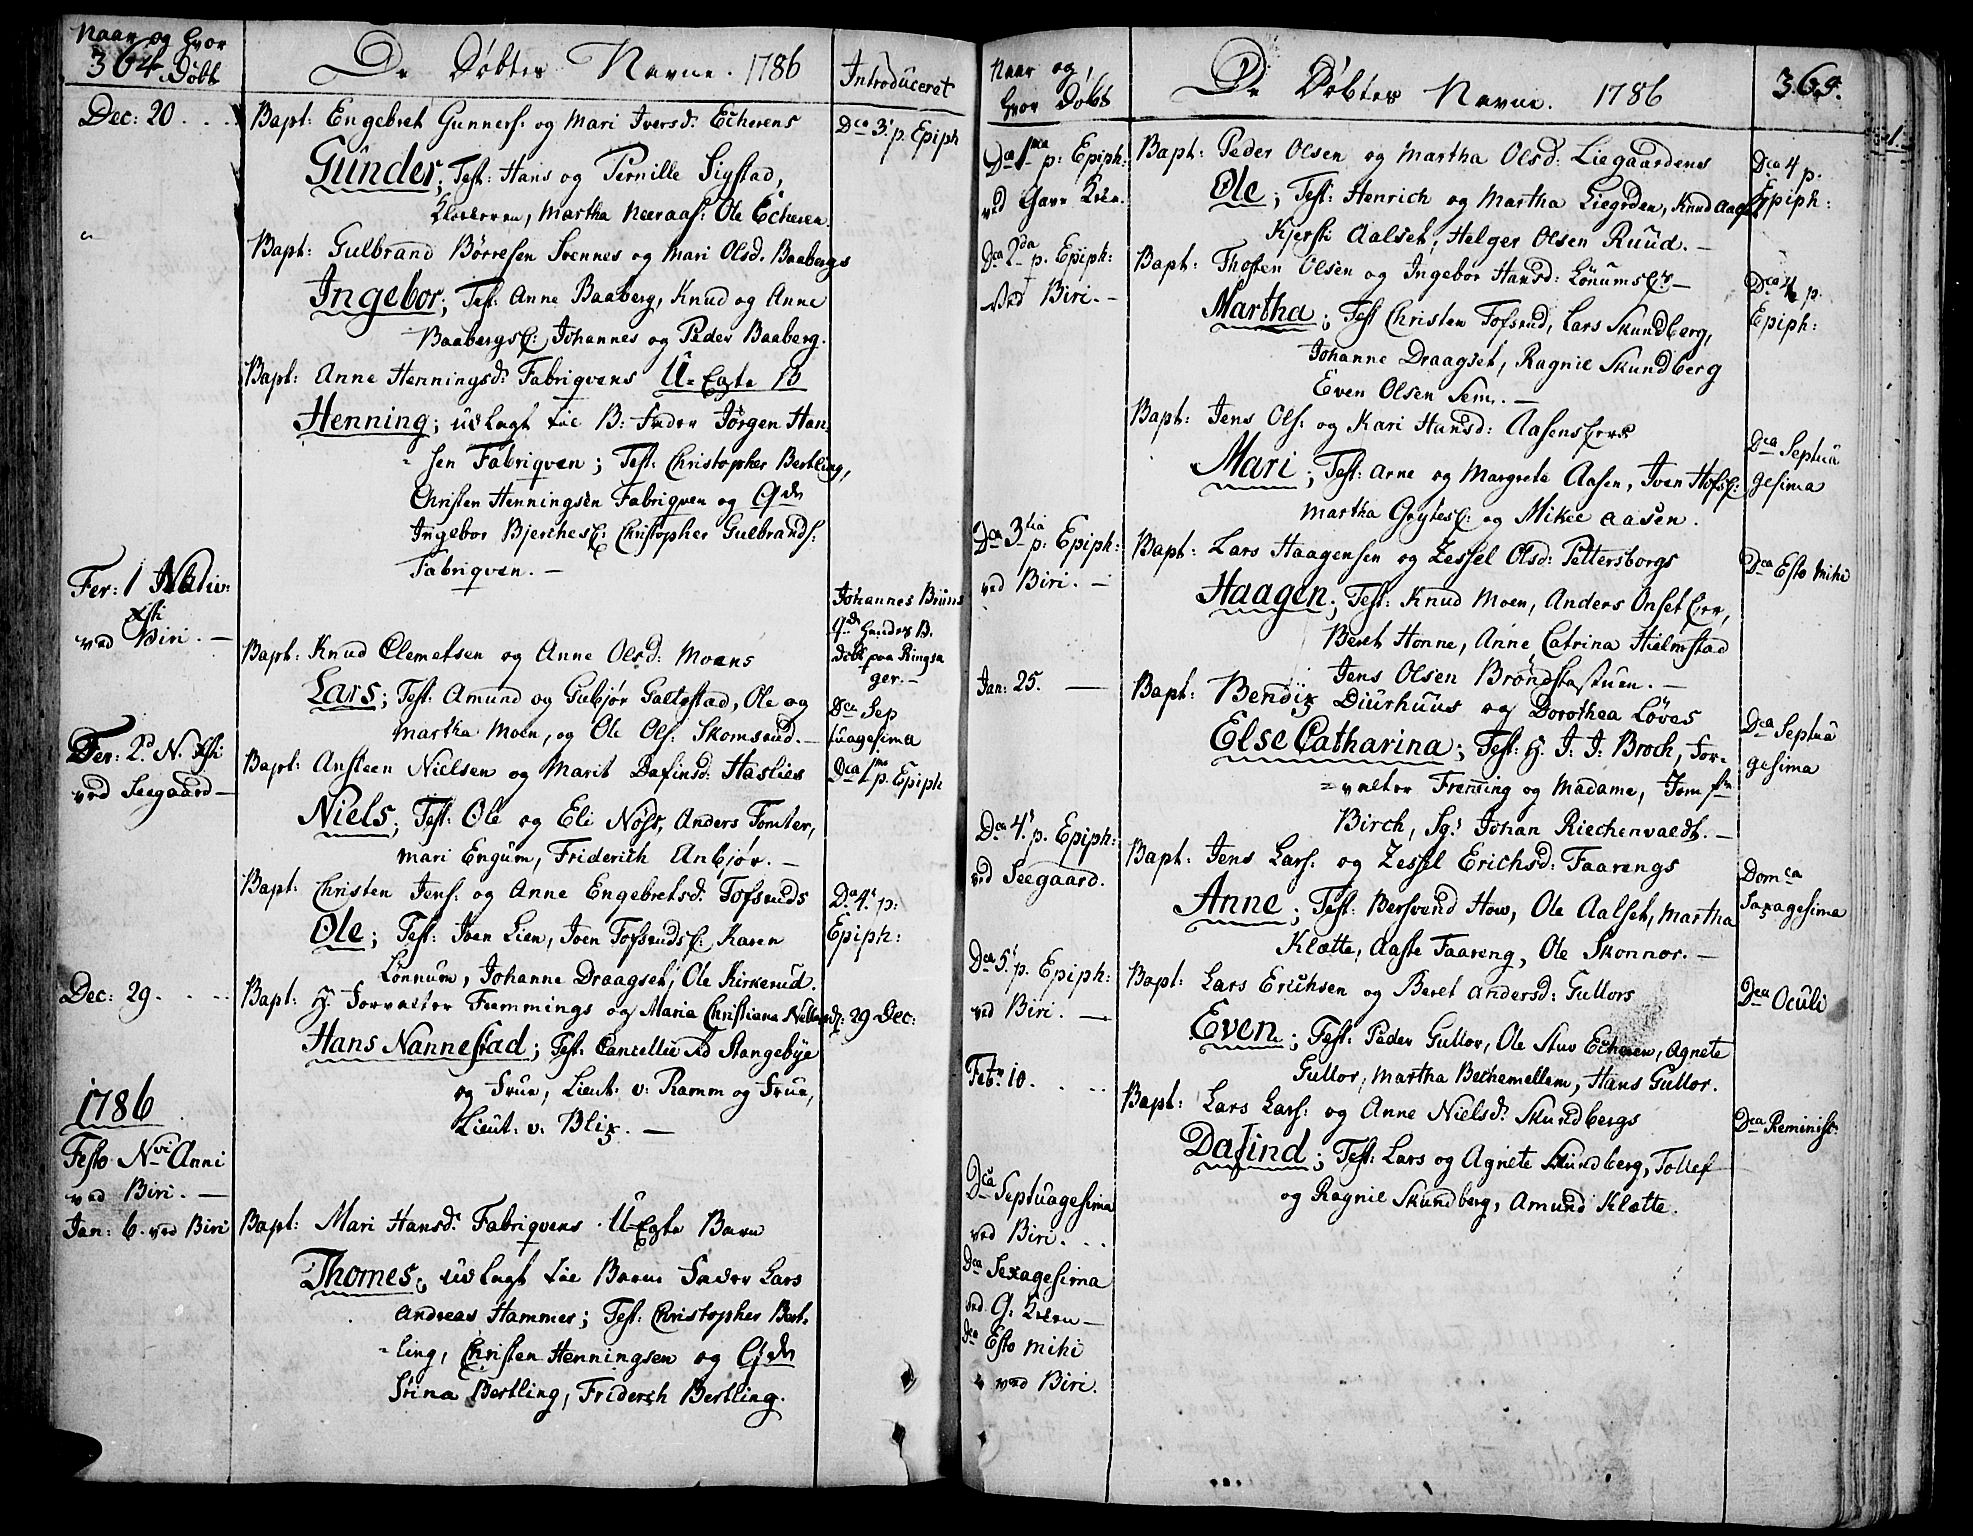 Naar og hvor
364. Døbt
De Døbtes Navne. 1786
Introduceret
Dec: 20. . . .
Bapt: Engebret Gunners: og Mari Iversd: Echerens
Dca 3. p. Epiph
Gunder; Test: Hans og Pernille Sigstad,
Martha Neeraas: Ole Echeren.
Bapt: Gulbrand Børresen Svennes og Mari Olsd. Baabergs
Ingebor; Test: Anne Baaberg, Knud og Anne
Baabergs: Johannes og Peder Baaberg.
Bapt: Anne Henningsd: Fabriqvens U-Egte B
Henning; udlagt til B: Fader Jørgen Han-
sen Fabriqven; Test: Christopher Bertling,
Christen Henningsen Fabriqven og
Ingebor Christopher Gulbrands:
Fabriqven. —
Fer: 1 Nativ:
Xsti
ved Biri. —
Johannes Bruns
Hendes B.
døbt paa Ringsa
ger. —
Bapt: Knud Clemetsen og Anne Olsd: Moens
Lars; Test: Amund og Gubjør Galtestad, Ole og
Martha Moen, og Ole Ols: Skomsrud. —
Dca Sep
tuagesima
Fer: 2d N. Xsti
ved Seegaard —
Bapt: Ansteen Nielsen og Marit Dafinsd: Haslies
Dca 1ma p. Epiph
Niels; Test: Ole og Eli Nøss, Anders Tomter,
Mari Engum, Friderich Anbjør. —
Bapt: Christen Jens: og Anne Engebretsd: Tofsruds
Dca 4. p:
Epiph:
Ole; Test: Iven Lien, Iven Tofsruds Karen
Lønnum, Johanne Draagset, Ole Kirkerud.
Dec: 29. . . . .
Bapt: H. Forvalter Flemmings og Maria Christiana
29 Dec:
Hans Nannestad; Test: Cancellie Stangebye
og Frue, Lieut: v: Ramm og Frue,
Lieut: v: Blix. —
1786
Festo Nvi Anni
ved Biri. —
Jan: 6. ved Biri
Bapt: Mari Hansd: Fabriqvens U-Egte Barn
Thomes, udlagt til Barne Fader Lars
Andreas Hammer; Test: Christopher Bert-
ling, Christen Henningsen og
Stina Bertling, Friderch Bertling.
Naar og
hvor Døbt
De Døbtes Navne. 1786
365.
Dca 1ma p: Epiph:
ved Gave Kven.
Bapt: Peder Olsen og Martha Olsd: Liegaardens
Ole; Test: Henrich og Martha Liegrden, Knud
Kjersti Aalset, Helger Olsen Ruud. —
Dca 4 p.
Epiph:
Dca 2da p. Epiph:
Ved Biri. —
Bapt: Thosten Olsen og Ingebor Hansd: Lønums
Martha; Test Christen Tofsrud, Lars Skundberg,
Johanne Draagset, Ragnil Skundberg
Even Olsen Sem. —
Dca 4 p.
Epiph:
Bapt: Jens Ols: og Kari Hansd: Aasens
Mari; Test: Arne og Margrete Aasen, Iven Hofs:
Martha Grytes: og Mikel Aasen.
Dca Septua
gesima
Dca 3tia p: Epiph:
ved Biri. —
Bapt: Lars Haagensen og Zessel Olsd: Pettersborgs
Haagen; Test: Knud Moen, Anders Onset
Beret Honne, Anne Catrina Hielmstad
Jens Olsen Brøndstastuen. —
Dca Esto mihi
Jan: 25. —
Bapt: Bendix Diurhuus og Dorothea Løves
Else Catharina; Test: H. J. J: Broch, For-
valter Fleming og Madame, Jomfr
Birch, Sgr Johan Riechenvaldt. —
Dca Septua
gesima
Dca 4. p. Epiph:
ved Seegaard.
Bapt: Jens Lars: og Zessel Erichsd: Faarengs
Anne; Test: Bersvend How, Ole Aalset, Martha
Klætte, Aaste Faareng, Ole Skonnor. —
Domca
Saxagesima
Dca 5. p. Epiph:
ved Biri. —
Bapt: Lars Erichsen og Beret Andersd: Gullors
Even; Test: Peder Gullor, Ole Stuv Echeren, Agnete
Gullor, Martha Bechemellem, Hans Gullor.
Dca Oculi
Febr: 10. . . .
Bapt: Lars Lars: og Anne Nielsd: Skundbergs
Dafind; Test: Lars og Agnete Skundberg, Tollef
og Ragnil Skundberg, Amund Klætte.
Dca Reminisc:
Dca Septuagesima
ved Biri. . .
Dca Sexagesima
ved G: Kven —
Dca Esto mihi
ved Biri.